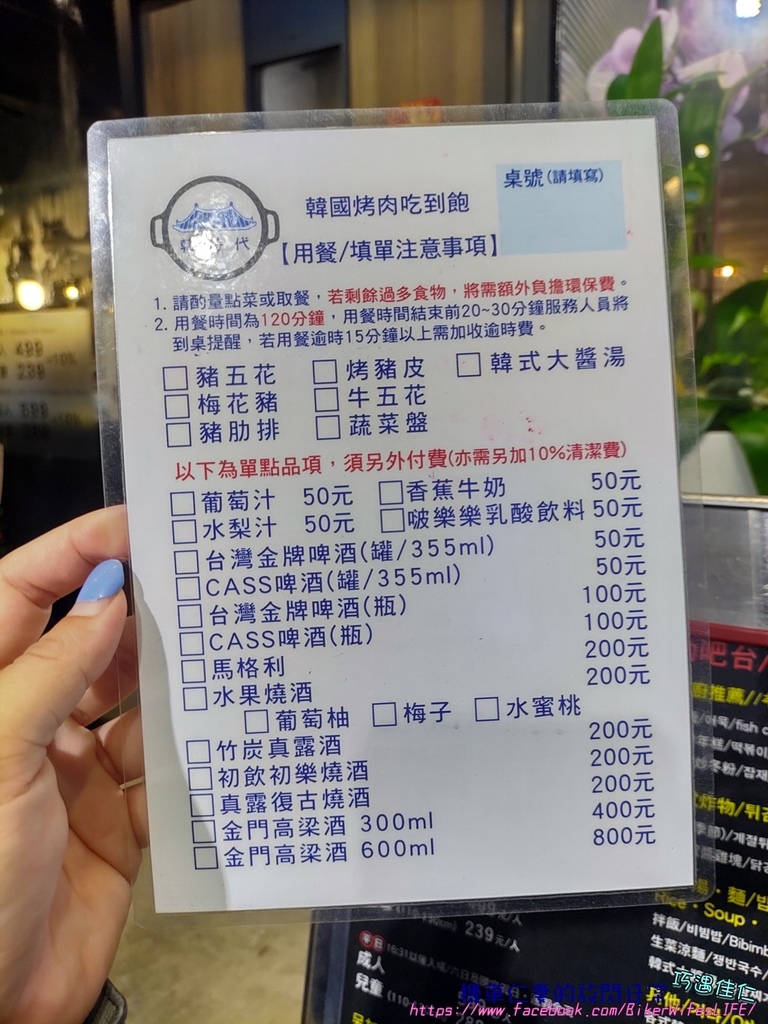 桌號(請填寫)
韓國烤肉吃到飽
代
【用餐/填單注意事項】
1. 請酌量點菜或取餐，若剩餘過多食物，將需額外負擔環保費。
2. 用餐時間為120分鐘，用餐時間結束前20~30分鐘服務人員將
到桌提醒，若用餐逾時15分鐘以上需加收逾時費。
豬五花 烤豬皮 韓式大醬湯
梅花豬 牛五花
豬肋排 蔬菜盤
以下為單點品項，須另外付費(亦需另加10%清潔費)
葡萄汁 50元 香蕉牛奶 50元
水梨汁 50元 啵樂樂乳酸飲料 50元
台灣金牌啤酒(罐/355ml) 50元
CASS啤酒(罐/355ml) 50元
台灣金牌啤酒(瓶) 100元
CASS啤酒(瓶) 100元
馬格利 200元
水果燒酒 200元
葡萄柚 梅子 水蜜桃
竹炭真露酒 200元
初飲初樂燒酒 200元
真露復古燒酒 200元
金門高梁酒 300ml 400元
金門高梁酒 600ml 800元
499
239
10%
吧台/
推薦//
/어묵/fish
年糕/떡볶이
炒冬粉/잡채
炸物/튀김
)/계절튀
雞塊/닭강
湯・麵/飯
Rice・Soup・
拌飯/비빔밥/Bibimb
生菜涼麵/쟁반국수/
韓式
其他/기타/Ot
239元/人
平日 16:31以後入場/六日
成人
兒童 (110
巧遇佳仁
https://www.facebook.com/BikerWifesLIFE/